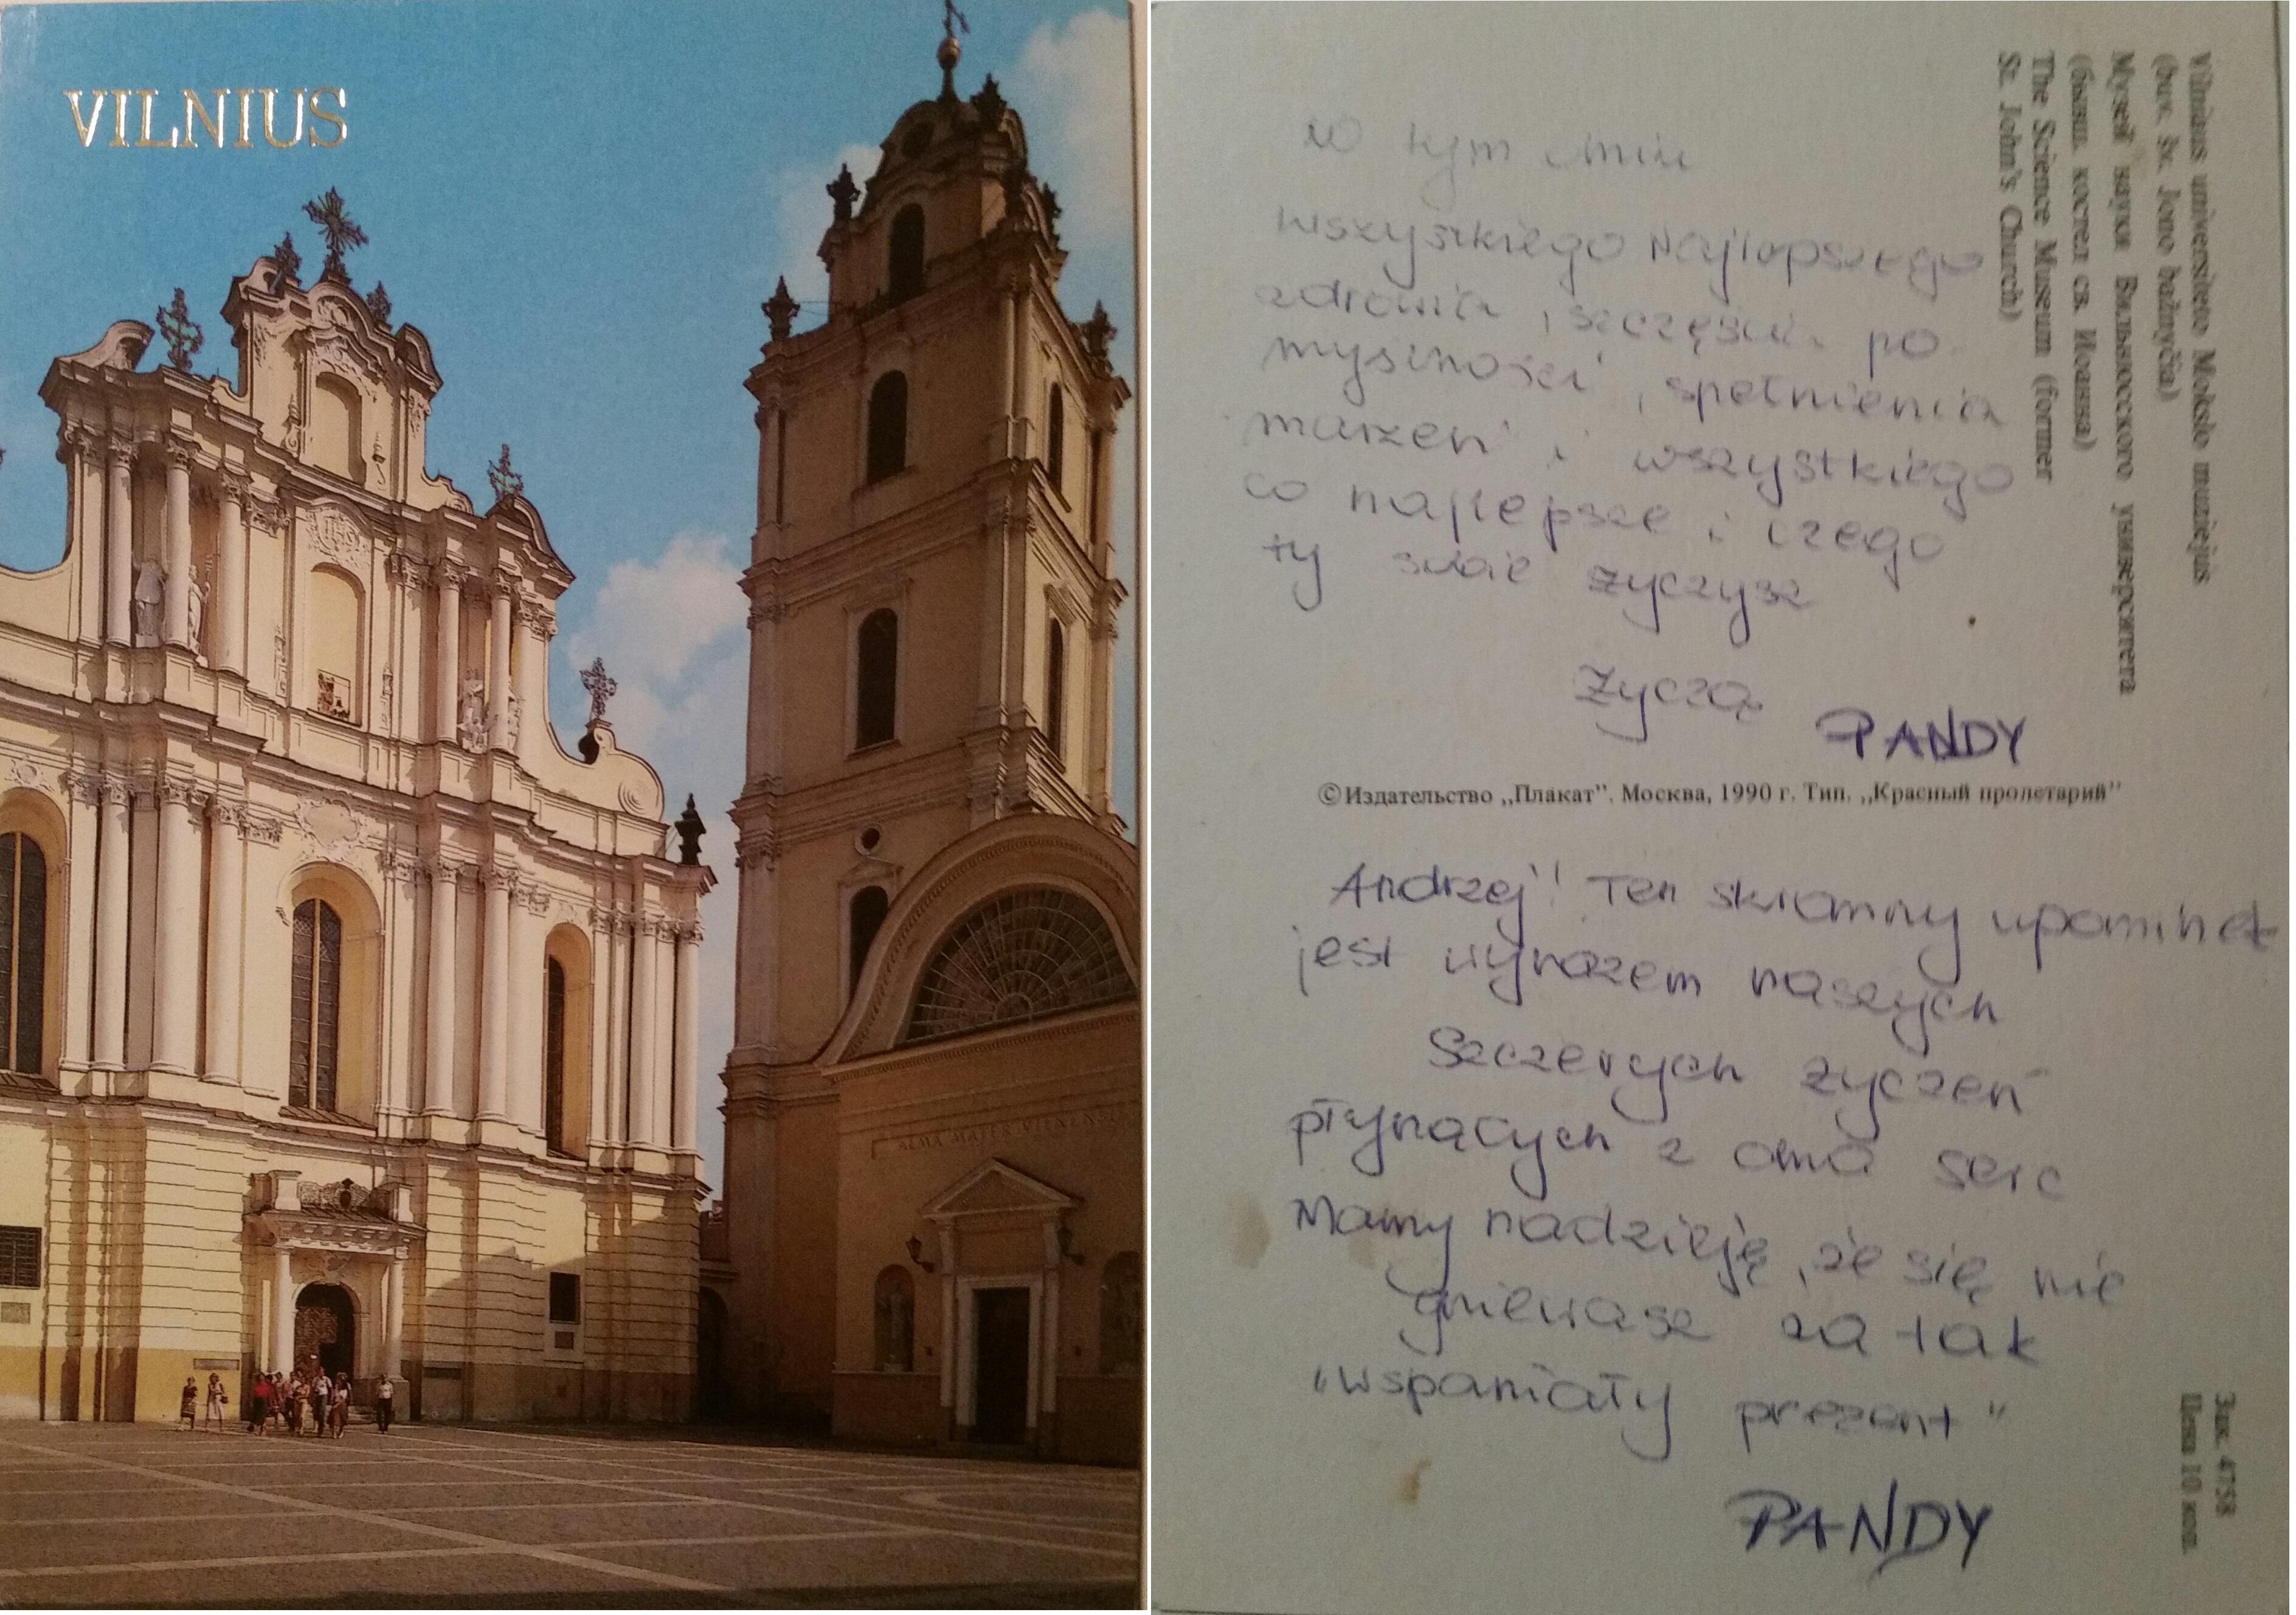 VILNIUS
ALMA MATER VILNENSIS
W tym dniu
wszystkiego Najlepszego
zdrowia, szczęścia, po
myslności, spełnienia
marzeń i wszystkiego
co najlepsze i czego
ty sobie życzysz
Życzą PANDY
©Издательство „Плакат”. Москва, 1990 г. Тип. „Красный пролетарий”
Andrzej! Ten skromny upominek
jest wyrazem naszych
Szczerych życzeń
płynących z dna serc
Mamy nadzieję, że się nie
gniewasz za tak
"wspaniały prezent"
PANDY
Vilniaus universiteto Mokslo muziejus
(buv. Šv. Jono bažnyčia)
Музей науки Вильнюсского университета
(бывш. костел св. Иоанна)
The Science Museum (former
St. John's Church)
Зак. 4758
Цена 10 коп.